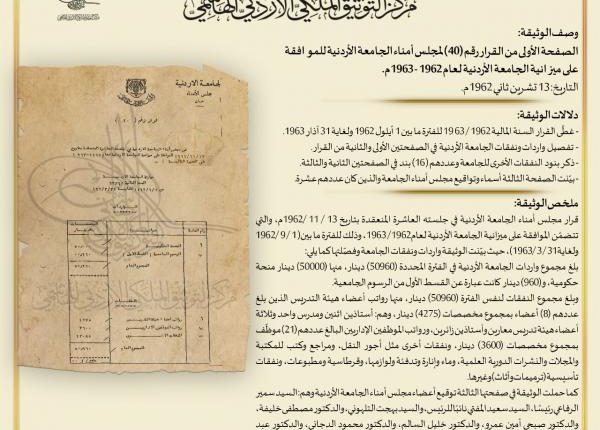 مركز التوثيق الملكي الأردني الهاشمي
وصف الوثيقة:
الصفحة الأولى من القرار رقم (40) لمجلس أمناء الجامعة الأردنية للموافقة
على ميزانية الجامعة الأردنية لعام 1962 - 1963م.
التاريخ: 13 تشرين ثاني 1962م.
دلالات الوثيقة:
- غطّى القرار السنة المالية 1962 / 1963 للفترة ما بين 1 أيلول 1962 ولغاية 31 آذار 1963.
- تفصيل واردات ونفقات الجامعة الأردنية في الصفحتين الأولى والثانية من القرار.
- ذكر بنود النفقات الأخرى للجامعة وعددهم (16) بند في الصفحتين الثانية والثالثة.
- بيّنت الصفحة الثالثة أسماء وتواقيع مجلس أمناء الجامعة والذين كان عددهم عشرة.
ملخص الوثيقة:
قرار مجلس أمناء الجامعة الأردنية في جلسته العاشرة المنعقدة بتاريخ 13 / 11 / 1962م، والتي
تتضمّن الموافقة على ميزانية الجامعة الأردنية لعام 1962/ 1963م، وذلك للفترة ما بين (1 / 9 / 1962
ولغاية 31 / 3 /1963م)، حيث بيّنت الوثيقة واردات ونفقات الجامعة وفصلتها كما يلي:
بلغ مجموع واردات الجامعة الأردنية في الفترة المحددة (50960) دينار، منها (50000) دينار منحة
حكومية، و(960) دينار كانت عبارة عن القسط الأول من الرسوم الجامعية.
وبلغ مجموع النفقات لنفس الفترة (50960) دينار، منها رواتب أعضاء هيئة التدريس الذين بلغ
عددهم (8) أعضاء بمجموع مخصصات (4275) دينار، وهم: أستاذين اثنين ومدرس واحد وثلاثة
أعضاء هيئة تدريس معارين وأستاذين زائرين، ورواتب الموظفين الإداريين البالغ عددهم (21) موظف
بمجموع مخصصات (3600) دينار، ونفقات أخرى مثل أجور النقل، ومراجع وكتب للمكتبة
والمجلات والنشرات الدورية العلمية، وماء وإنارة وتدفئة ولوازمها، وقرطاسية ومطبوعات، ونفقات
تأسيسية (ترميمات وأثاث) وغيرها.
كما حملت الوثيقة في صفحتها الثالثة توقيع أعضاء مجلس أمناء الجامعة الأردنية وهم: السيد سمير
الرفاعي رئيسًا، السيد سعيد المفتي نائبًا للرئيس، والسيد بهجت التلهوني، والدكتور مصطفى خليفة،
والدكتور صبحي أمين عمرو، والدكتور خليل السالم، والدكتور محمود الدجاني، والدكتور عبد
الجامعة الاردنية
مجلس الأمناء
عمان
قرار رقم (٤٠)